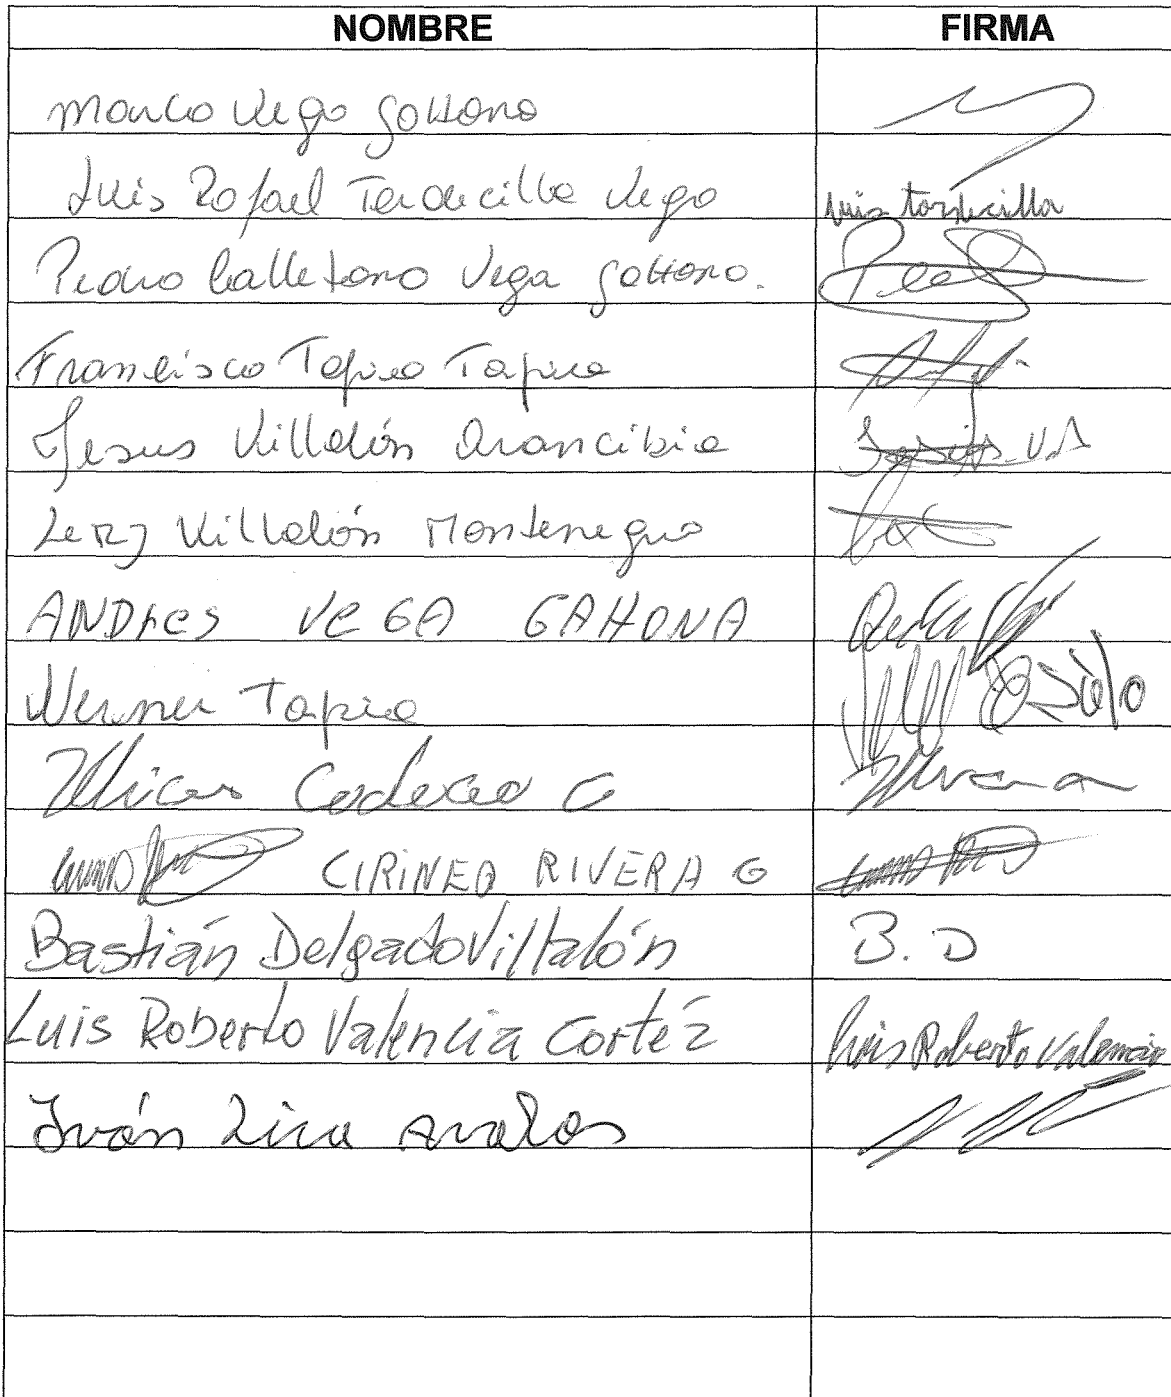 NOMBRE FIRMA
Marco Vega Gahona
Luis Rafael Tordecilla Vega Luis tordecilla
Pedro Calletano Vega Gahona.
Francisco Tapia Tapia
Jesus Villalón Arancibia Jesús V.A
Villalón Montenegro
ANDrés VEGA GAHONA
Werner Tapia
CIRINEO RIVERA G
Bastián Delgado Villalón B.D
Luis Roberto Valencia Cortéz Luis Roberto Valencia
Iván Lira Avalos